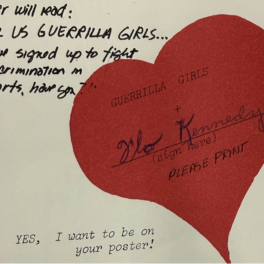 er will read:
L US GUERRILLA GIRLS...
ve signed up to fight
crimination in
arts, have you?"
GUERRILLA GIRLS
+
Flo Kennedy
(sign here)
PLEASE PRINT
YES, I want to be on
your poster!